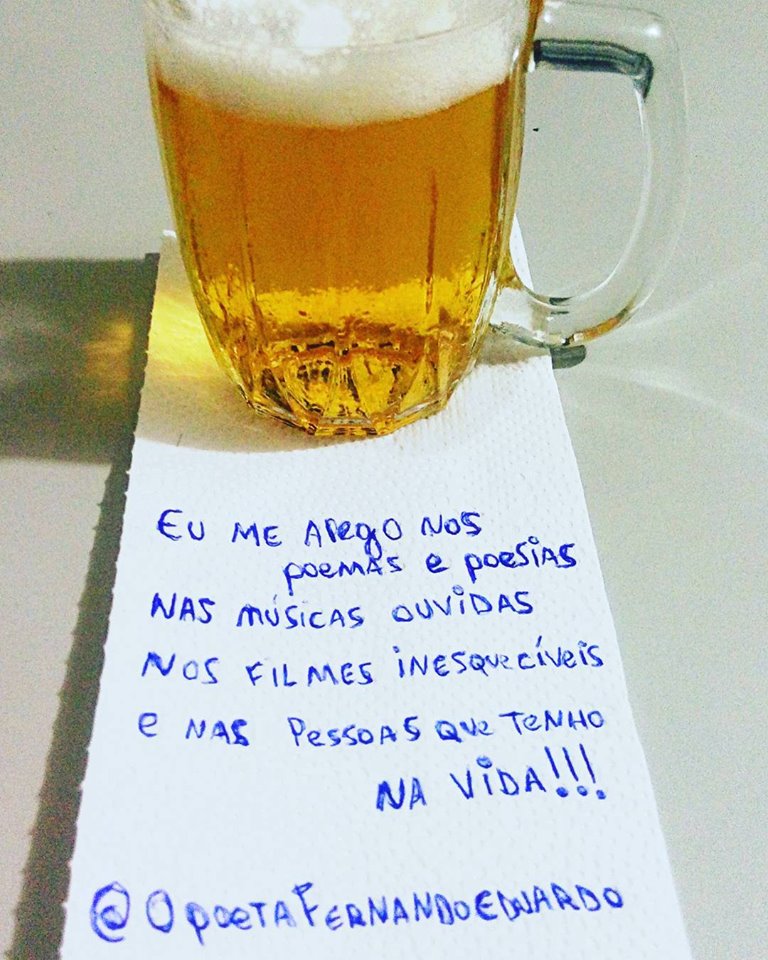 EU ME APEGO NOS
POEMAS E POESIAS
NAS MÚSICAS OUVIDAS
NOS FILMES INESQUECÍVEIS
E NAS PESSOAS QUE TENHO
NA VIDA!!!
@OPOETAFERNANDOEDUARDO